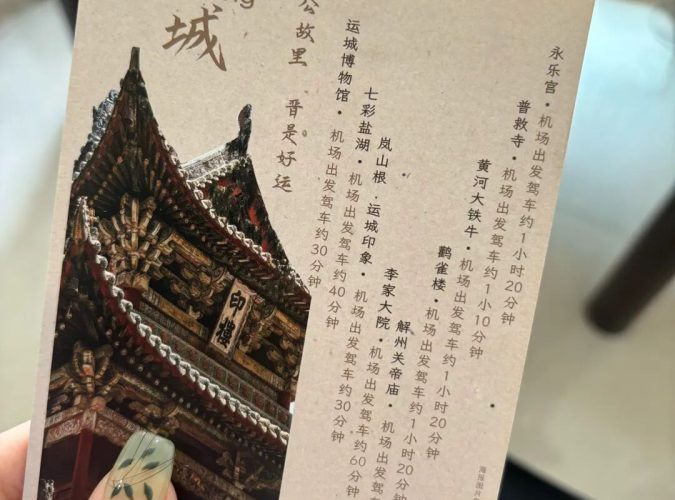 城
公故里 晋是好运
印楼
永乐宫·机场出发驾车约1小时20分钟
普救寺·机场出发驾车约1小10分钟
黄河大铁牛·机场出发驾车约1小时20分钟
鹳雀楼·机场出发驾车约1小时20分钟
解州关帝庙·机场出发
李家大院·机场出发驾车约60分钟
岚山根.运城印象·机场出发驾车约30分钟
七彩盐湖·机场出发驾车约40分钟
运城博物馆·机场出发驾车约30分钟
海报图片